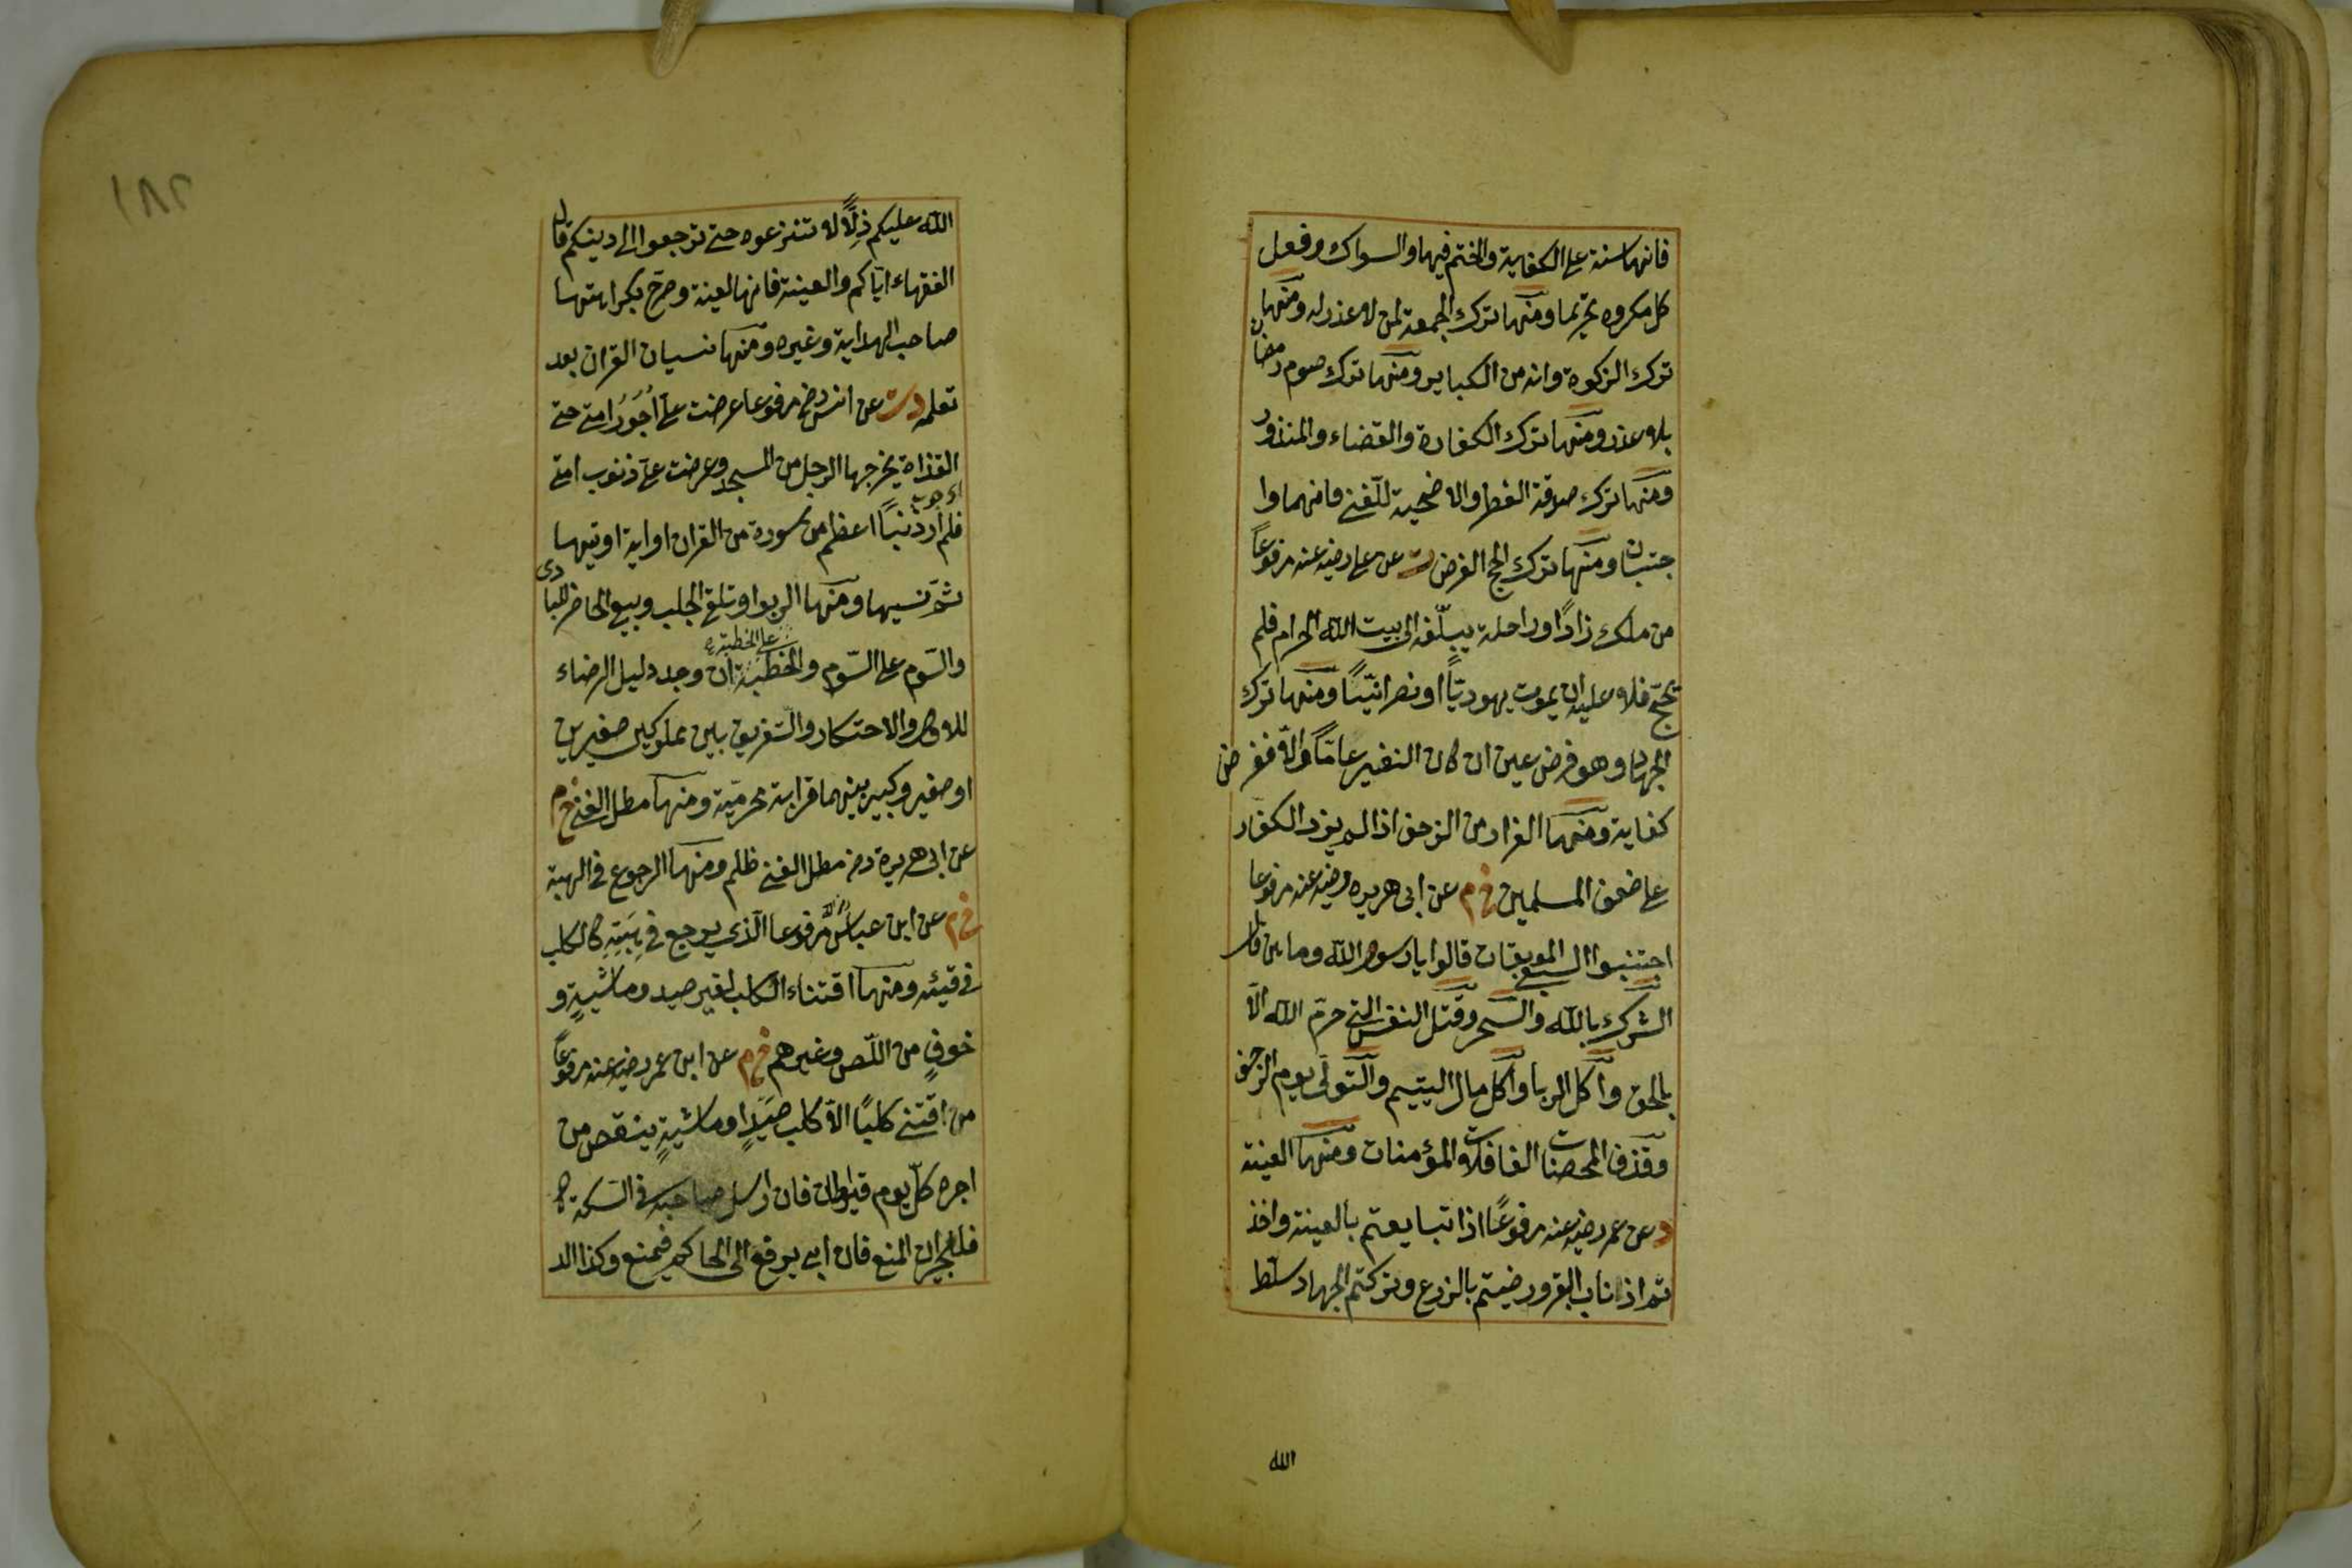 فانها سنة على الكفاية والختم فيها والسواك وفعل
كل مكروه تحريما ومنها ترك الجمعة لمن لا عذر له ومنها
ترك الزكوة وانه من الكباير ومنها ترك صوم رمضان
بلا عذر ومنها ترك الكفارة والقضاء والمنذور
ومنها ترك صدقة الفطر والاضحية للغني فانهما وا
جبتان ومنها ترك الحج الفرض ت عن علي رضي عنه مرفوعاً
من ملك زادًا وراحلة يبلّغه الى بيت الله الحرام فلم
يحجّ فلا عليه ان يموت يهوديّاً او نصرانيّاً ومنها ترك
الجهاد وهو فرض عين ان كان النفير عامّاً والّا ففرض
كفاية ومنها الفرار من الزحف اذا لم يزد الكفار
على ضعف المسلمين خ م عن ابى هريره رضي عنه مرفوعا
اجتنبوا السبع الموبقات قالوا يا رسول الله وما هن قال
الشرك بالله والسحر وقتل النفس التي حرّم الله الّا
بالحق وأكل الربا وأكل مال اليتيم والتّولّى يوم الزحف
وقذف المحصنات الغافلات المؤمنات ومنها العينة
د عن عمر رضي عنه مرفوعًا اذا تبايعتم بالعينة واخذ
تم اذناب البقر ورضيتم بالزرع وتركتم الجهاد سلّط
الله
١٨٢
الله عليكم ذلًّا لا تنزعوه حتى ترجعوا الى دينكم قال
الفقهاء ايّاكم والعينة فانها لعينة وصرّح بكراهتها
صاحب الهداية وغيره ومنها نسيان القران بعد
تعلمه د ت عن انس رض مرفوعا عرضت علىّ اُجُورُ امتى حتى
القذاة يخرجها الرجل من المسجد وعرضت علىّ ذنوب امتى
فلم أر ذنباً اعظم من سورة من القران او اية اوتيها
ثمّ نسيها ومنها الربوا وتلقي الجلب وبيع الحاضر للبادى
والسّوم على السّوم والخطبة على الخطبة ان وجد دليل الرضاء
للاول والاحتكار والتّفريق بين مملوكين صغيرين
او صغير وكبير بينهما قرابة محرميّة ومنها مطل الغنى خ م
عن ابى هريرة رض مطل الغنى ظلم ومنها الرجوع في الهبة
خ م عن ابن عباس مرفوعا الّذى يرجع في هِبَتِهِ كالكلب
فى قيئه ومنها اقتناء الكلب لغير صيد وماشيةٍ و
خوفٍ من اللّص وغيرهم خ م عن ابن عمر رضي عنه مرفوعاً
من اقتنى كلبًا الّا كلب صيدٍ او ماشيةٍ ينقص من
اجره كلّ يوم قيراطان فان ارسل صاحبه فى السّكة
فللجيران المنع فان ابى يرفع الى الحاكم فيمنع وكذا الد